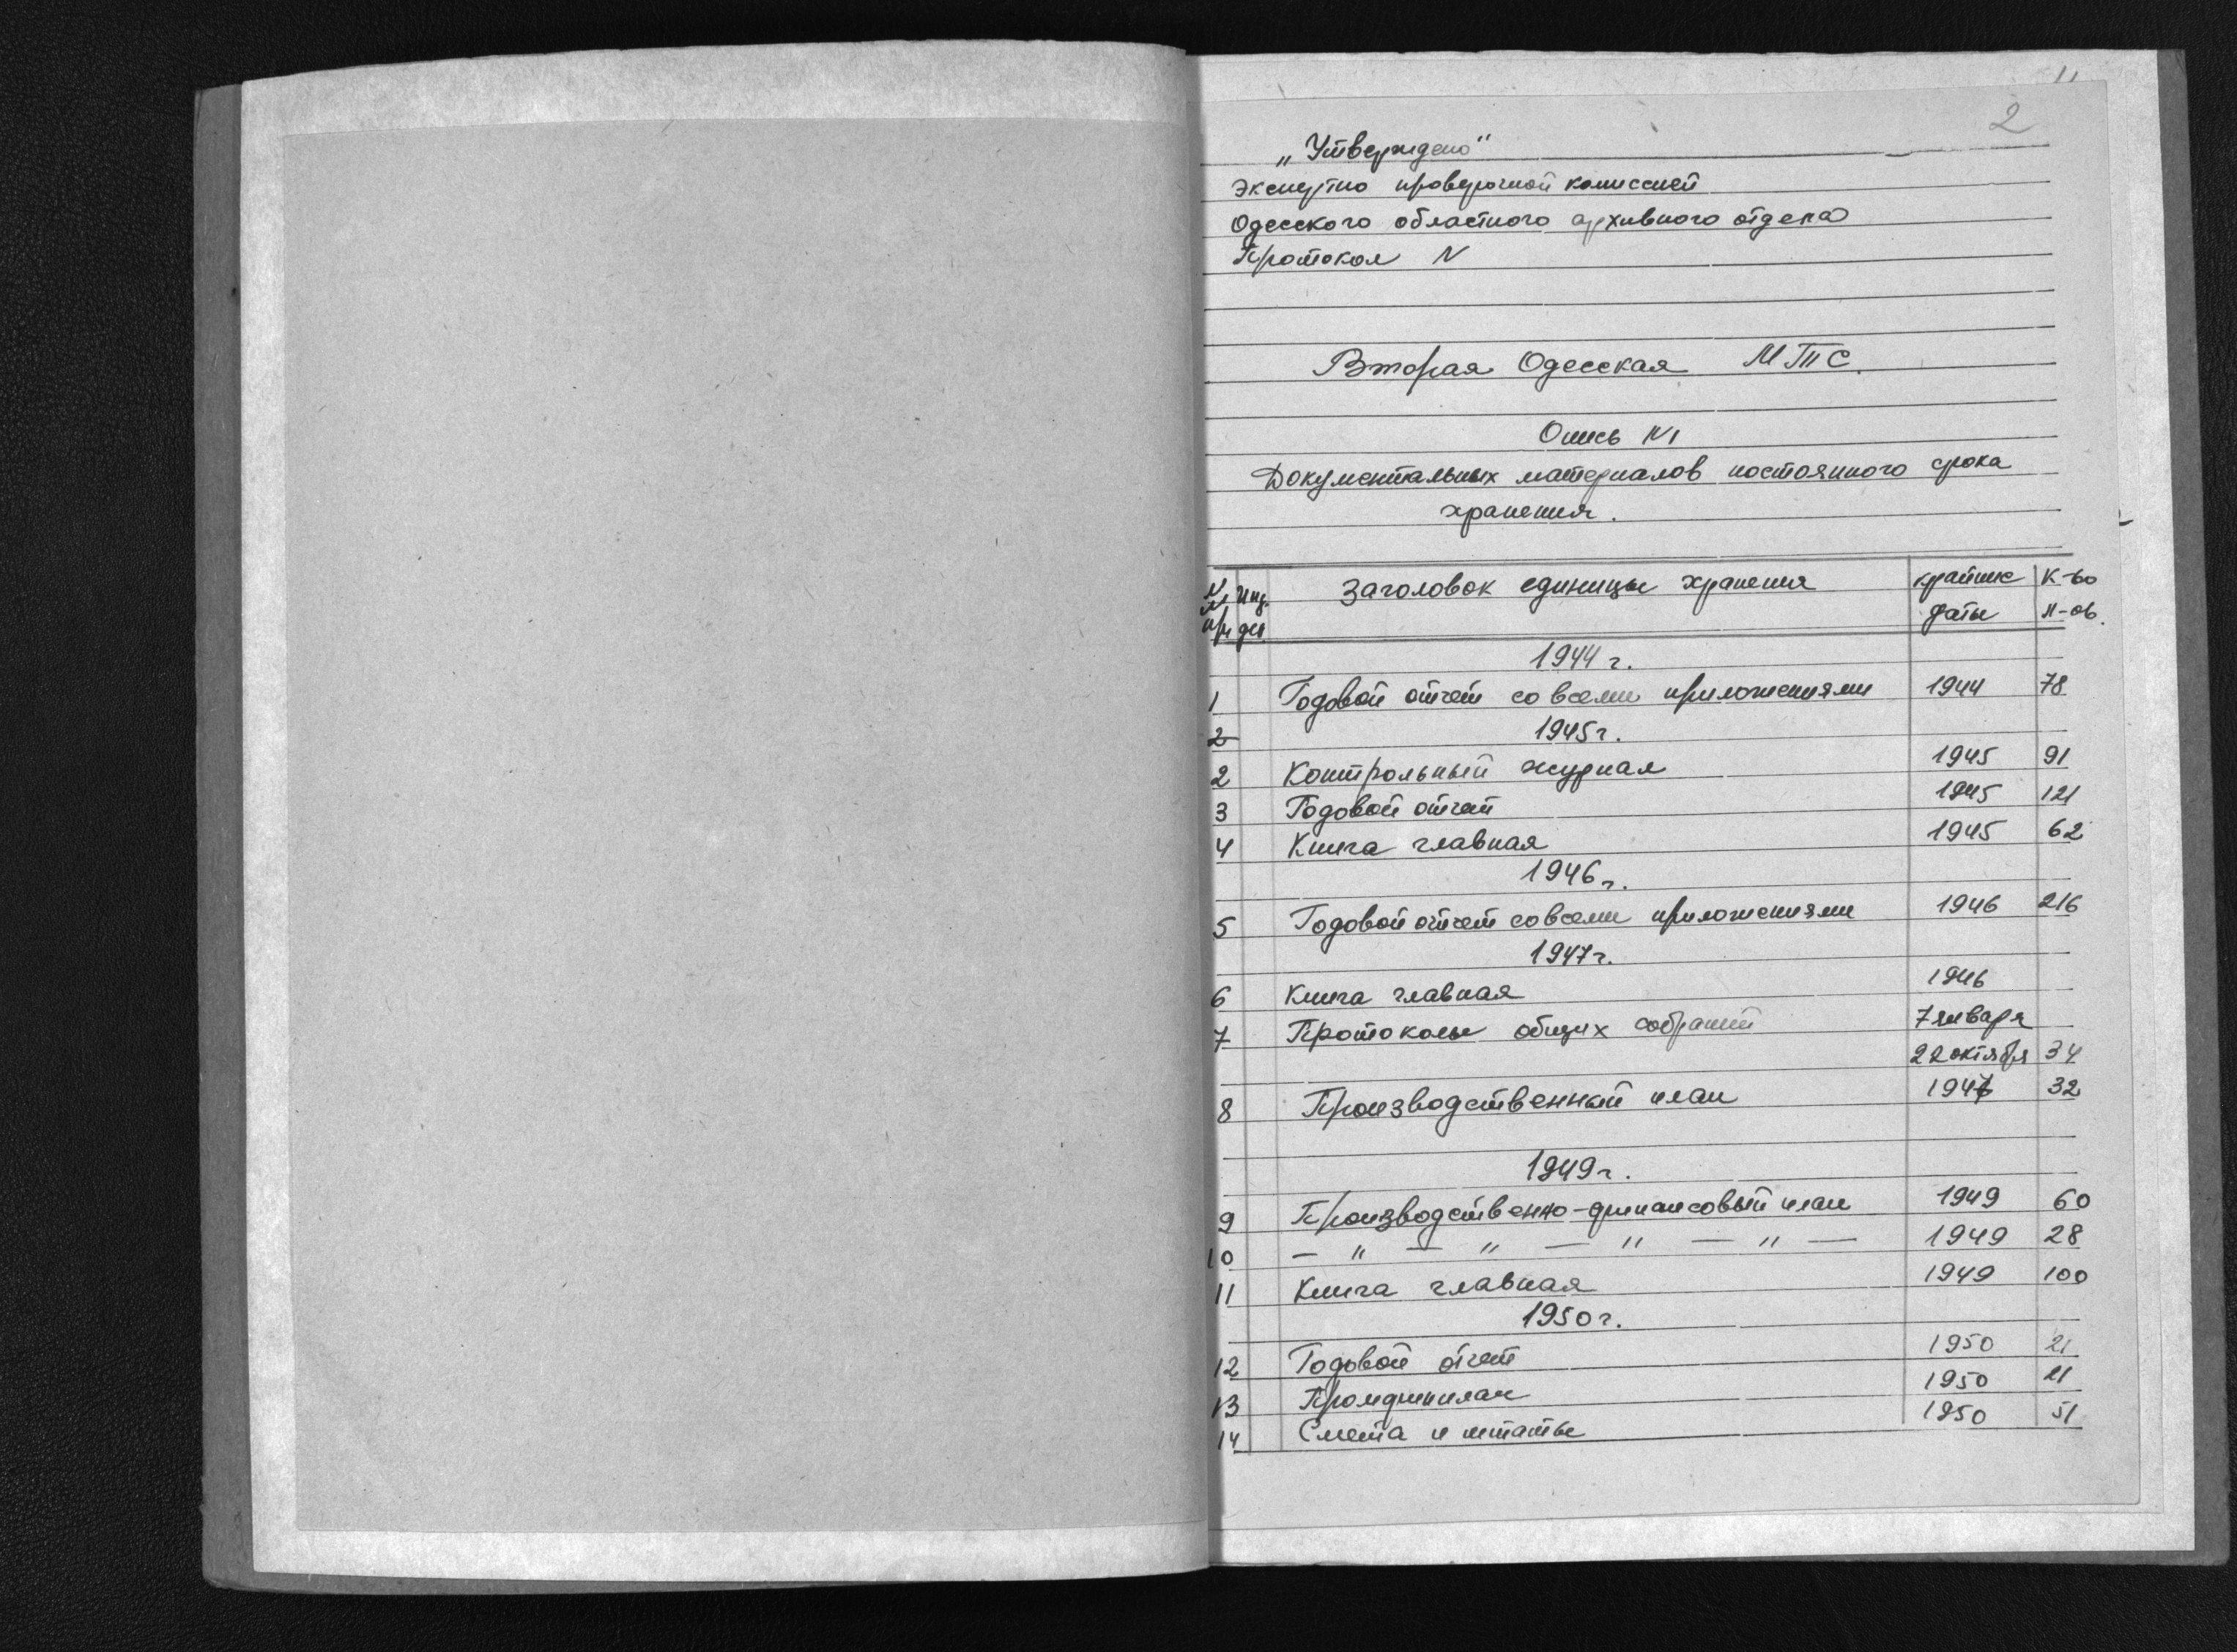 2
„Утверждено"
экспертно проверочной комиссией
Одесского областного архивного отдела
Протокол N
Вторая Одесская МТС.
Опись N1
Документальных материалов постоянного срока
хранения.
NN п/п Инд. дел. Заголовок единицы хранения крайние даты К-во л-ов.
1944 г.
1 Годовой отчет со всеми приложениями 1944 78
2 1945 г.
2 Контрольный журнал 1945 91
3 Годовой отчет 1945 121
4 Книга главная 1945 62
1946 г.
5 Годовой отчет со всеми приложениями 1946 216
1947 г.
6 Книга главная 1946
7 Протоколы общих собраний 7 января
22 октября 34
8 Производственный план 1947 32
1949 г.
9 Производственно-финансовый план 1949 60
10 — " — " — " — " — 1949 28
11 Книга главная 1949 100
1950 г.
12 Годовой отчет 1950 21
13 Промфинплан 1950 21
14 Смета и штаты 1950 51